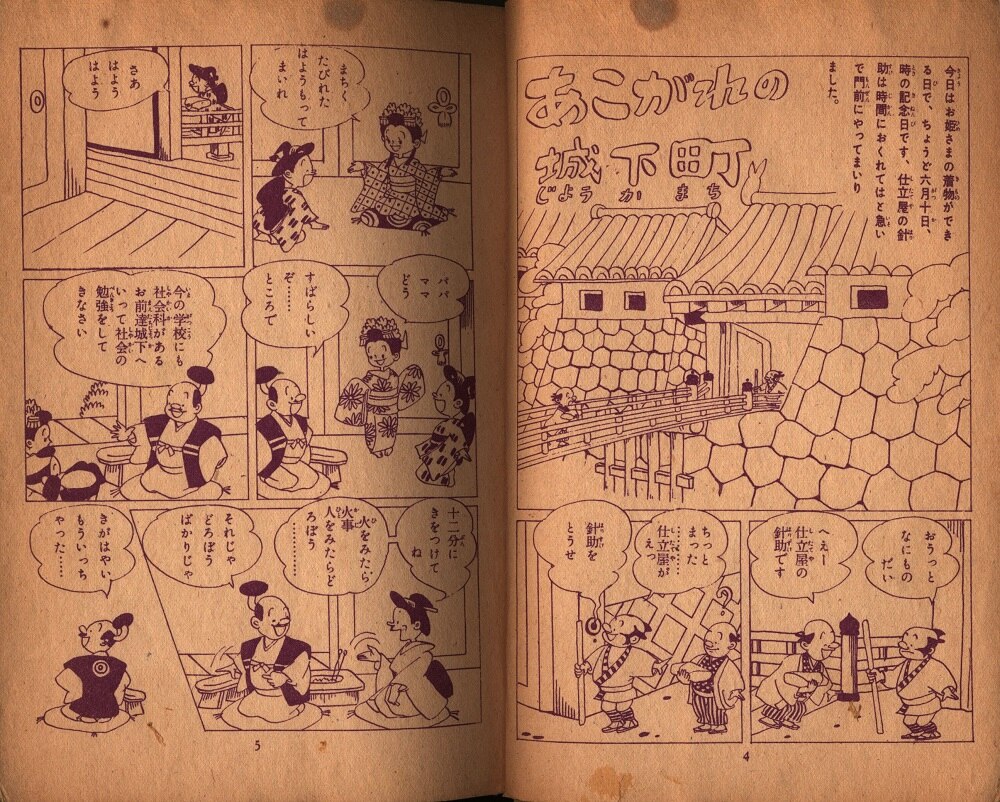 あこがれの
城下町
じょうかまち
今日はお姫さまの着物ができ
る日で、ちょうど六月十日、
時の記念日です、仕立屋の針
助は時間におくれてはと急い
で門前にやってまいり
ました。
おうっと
なにもの
だい
へえー
仕立屋の
針助です
ちっと
まった
仕立屋が
えっ
針助を
とうせ
4
まちく
たびれた
はようもって
まいれ
さあ
はよう
はよう
パパ
ママ
どう
すばらしい
ぞ……
ところで
今の学校にも
社会科がある
お前達城下へ
いって社会の
勉強をして
きなさい
十二分に
きをつけて
ね
火をみたら
火事
人をみたらど
ろぼう
…………
それじゃ
どろぼう
ばかりじゃ
きがはやい
もういっち
ゃった……
5